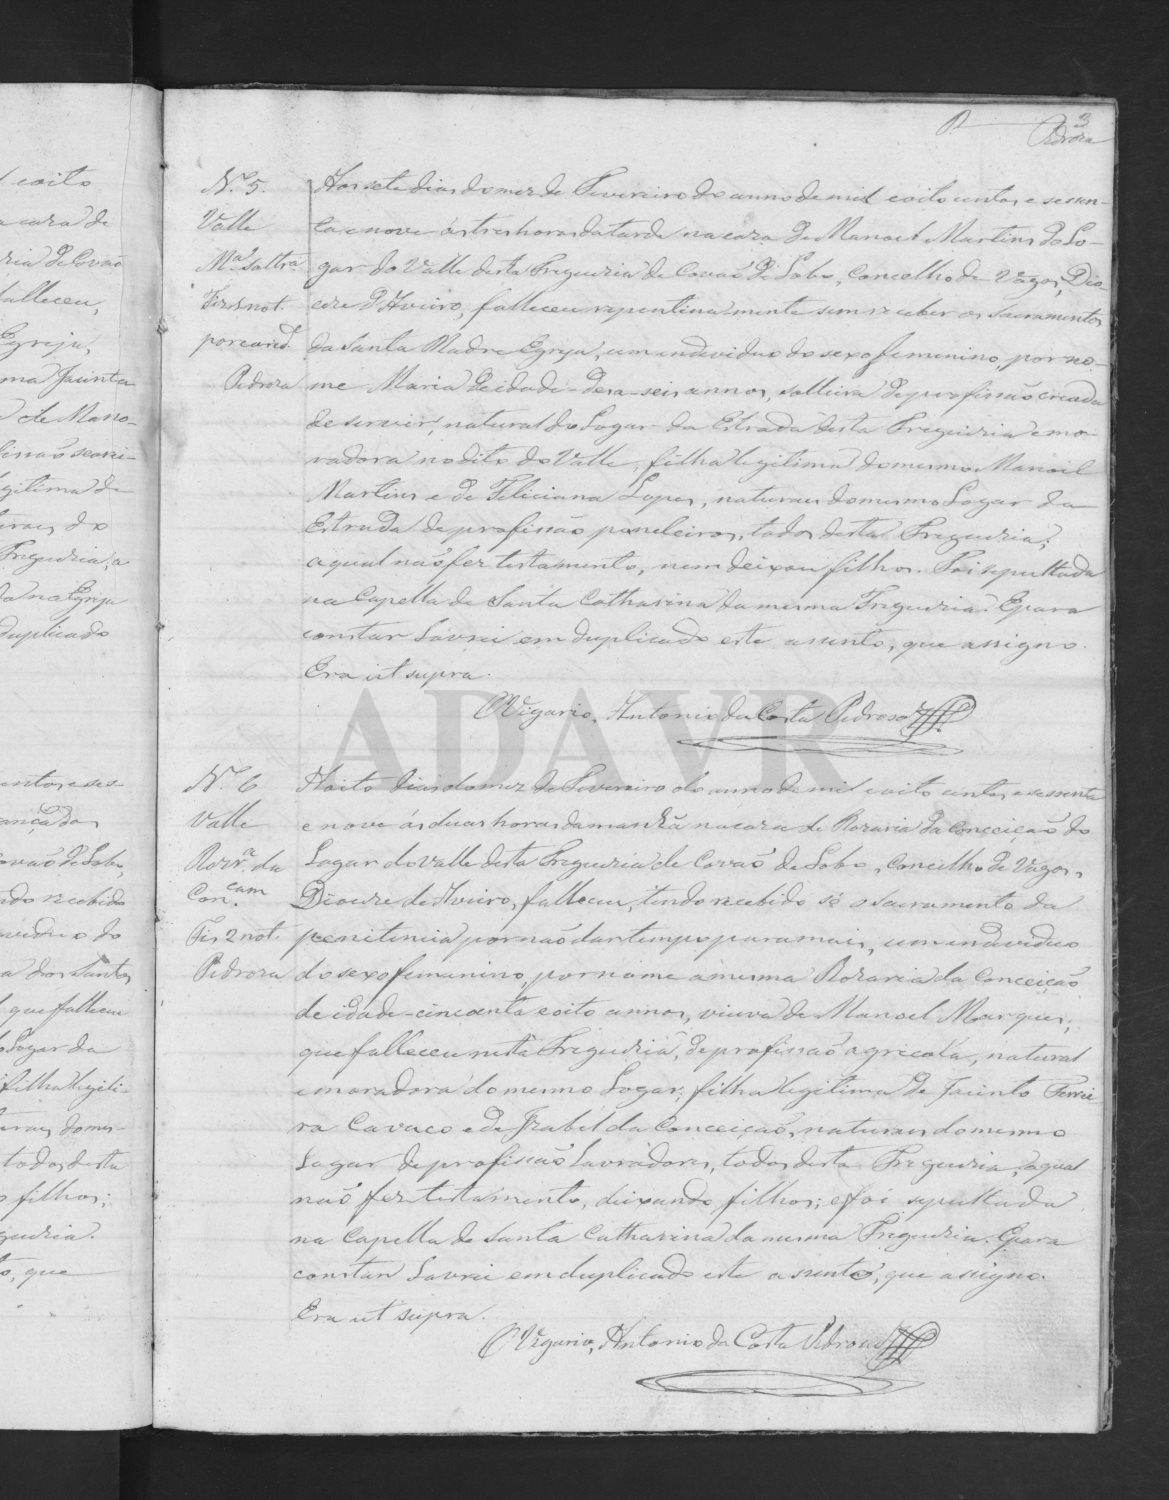 3
Pedroza
N.º 5.
Valle
M.ª soltr.ª
Fiz 1 not.
por card.
Pedroza
Aos sete dias do mez de Fevereiro do anno de mil e oito centos e sessen-
ta e nove ás tres horas da tarde na caza de Manoel Martins do Lo-
gar do Valle desta Freguezia de Covaõ de Lobo, Concelho de Vagos, Dio-
ceze d'Aveiro, falleceu repentinamente sem receber os Sacramentos
da Santa Madre Egreja, um individuo do sexo femenino, por no-
me Maria de idade deza-seis annos, solteira de profissão creada
de servir, natural do Logar da Estrada desta Freguezia e mo-
radora no dito do Valle, filha legitima do mesmo Manoel
Martins e de Feliciana Lopes, naturaes do mesmo Logar da
Estrada de profissão paneleiros, todos desta Freguezia;
a qual não fez testamento, nem deixou filhos. Foi sepultada
na Capella de Santa Catharina da mesma Freguezia. E para
constar Lavrei em duplicado este assento, que assigno.
Era ut supra.
O Vigario, Antonio da Costa Pedroso
N.º 6
Valle
Rozr.ª da
Con.cam
Fiz 2 not.
Pedroza
A oito dias do mez de Fevereiro do anno de mil e oito centos e sessenta
e nove ás duas horas da manhã na caza de Rozaria da Conceição do
Logar do Valle desta Freguezia de Covaõ de Lobo, Concelho de Vagos,
Dioceze de Aveiro, falleceu, tendo recebido só o Sacramento da
penitencia por não dar tempo para mais, um individuo
do sexo femenino, por nome a mesma Rozaria da Conceição
de idade cincoenta e oito annos, viuva de Manoel Marques,
que falleceu nesta Freguezia, de profissão agricola, natural
e moradora do mesmo Logar, filha legitima de Jacinto Ferrei-
ra Cavaco e de Izabel da Conceição, naturaes do mesmo
Logar de profissão Lavradores, todos desta Freguezia, a qual
não fez testamento, deixando filhos; e foi sepultada
na Capella de Santa Catharina da mesma Freguezia. E para
constar Lavrei em duplicado este assento, que assigno.
Era ut supra.
O Vigario, Antonio da Costa Pedroso
ADAVR